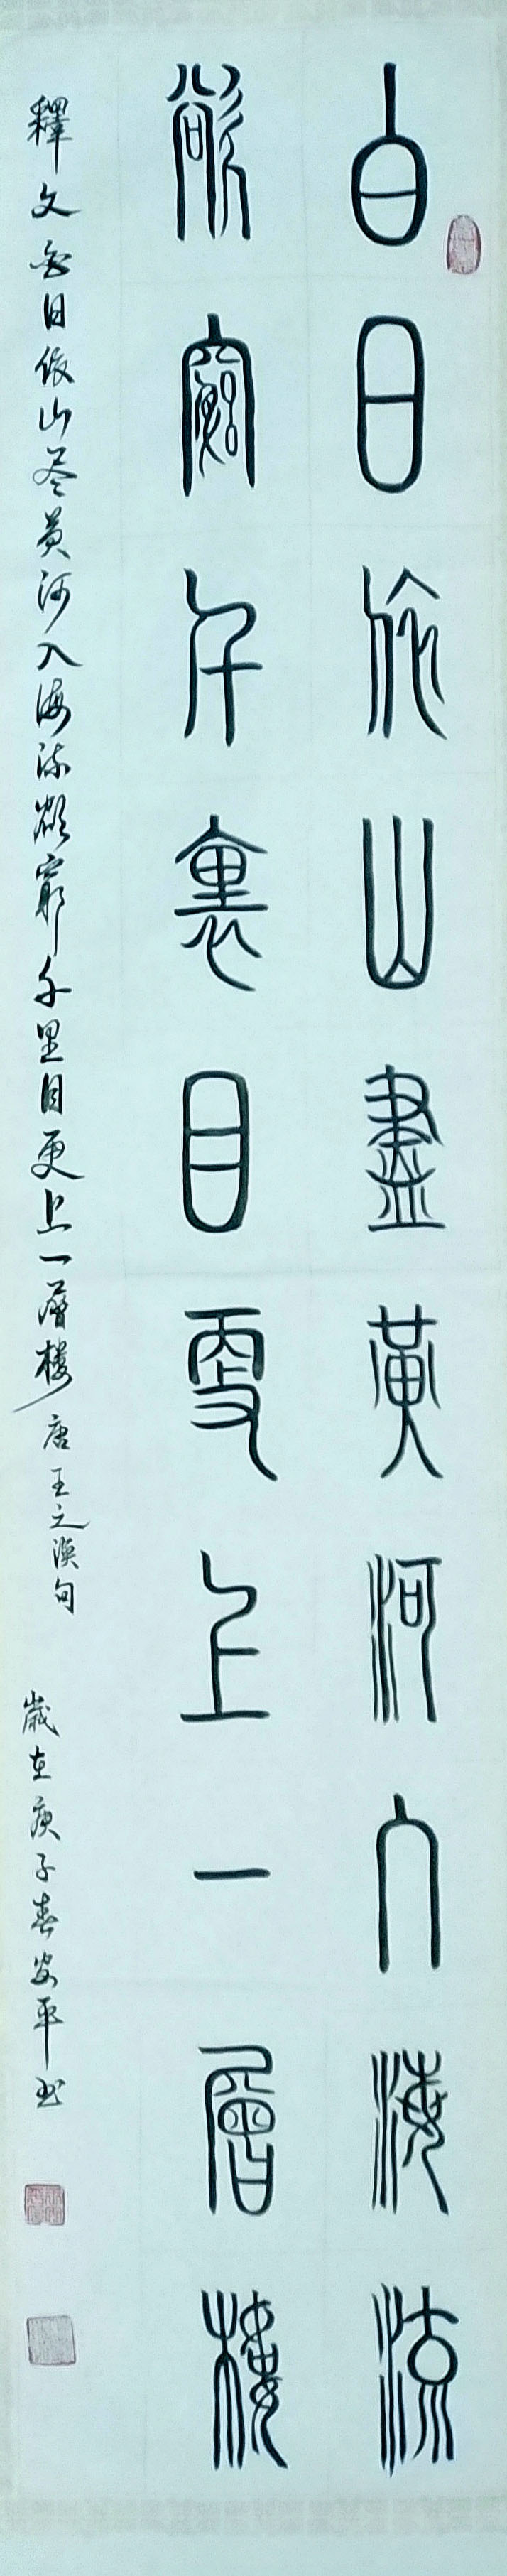 白日依山盡黃河入海流
欲窮千裏目更上一層樓
釋文白日依山尽黄河入海流欲窮千里目更上一層楼唐王之渙句
歲在庚子春安平书